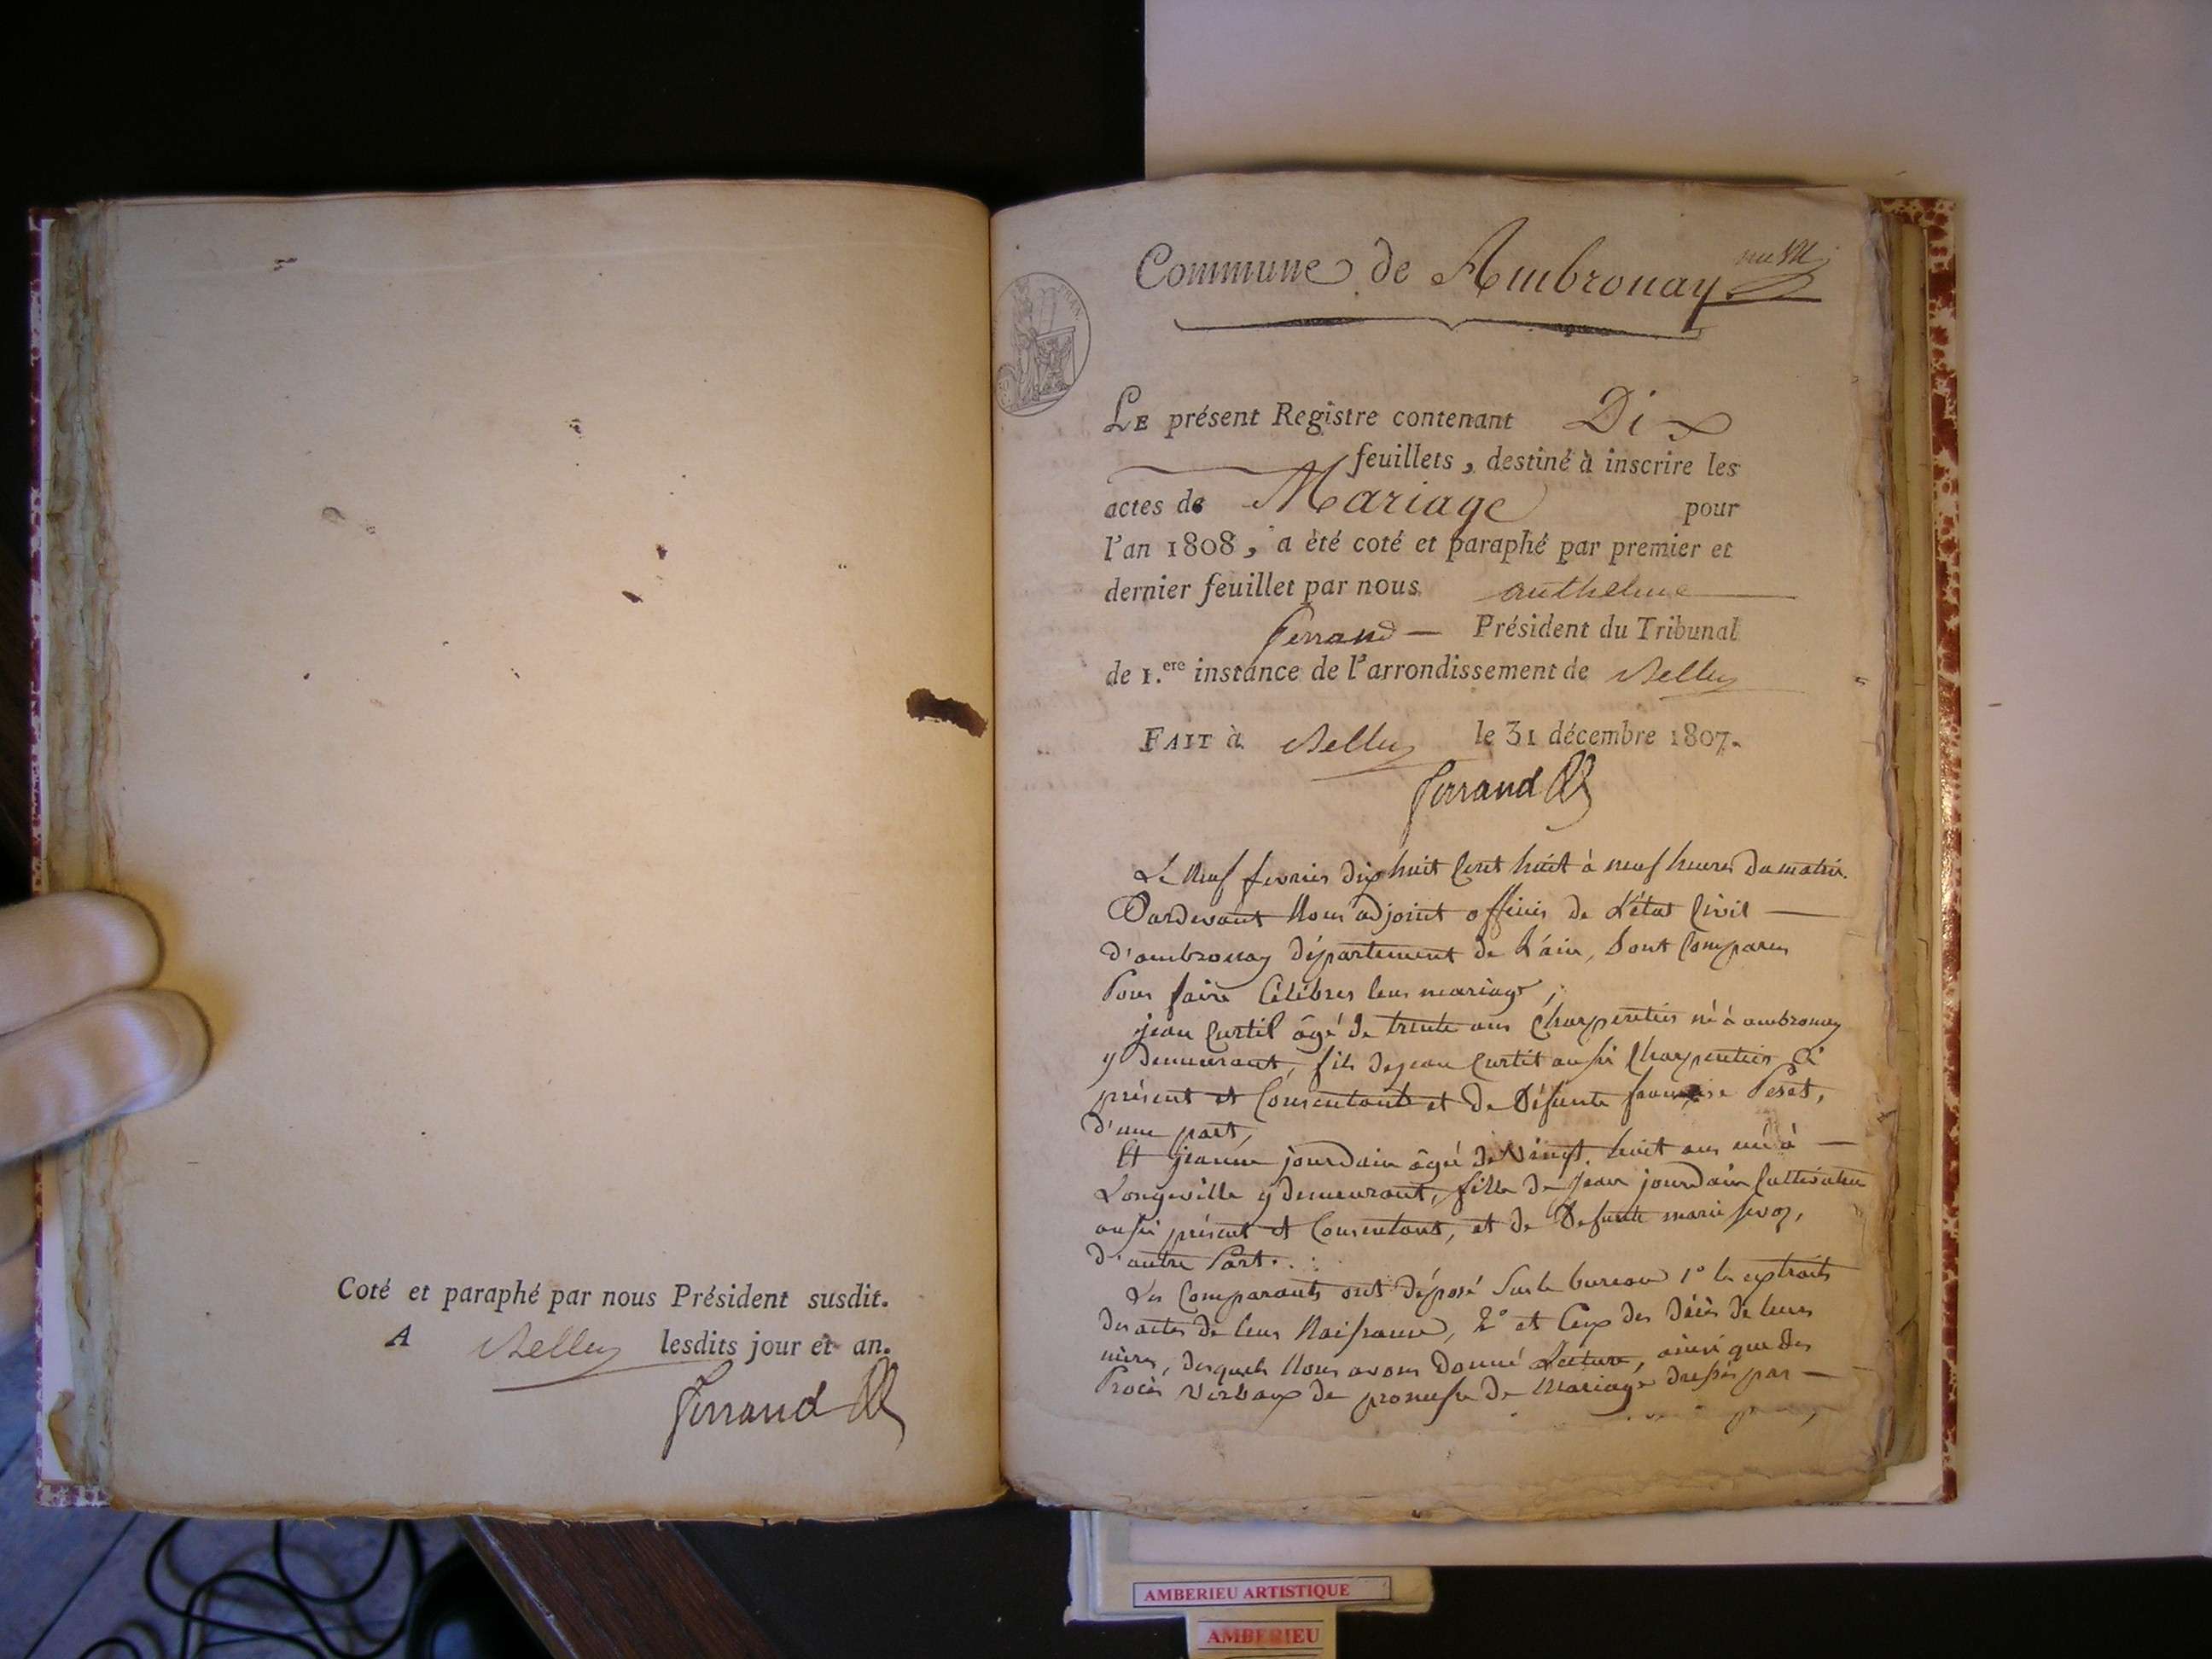 Coté et paraphé par nous Président susdit.
A Belley lesdits jour et an.
Ferrand
Commune de Ambronay
LE présent Registre contenant Dix
feuillets, destiné à inscrire les
actes de Mariage pour
l'an 1808, a èté coté et paraphé par premier et
dernier feuillet par nous anthelme
ferrand Président du Tribunal
de 1.ere instance de l'arrondissement de Belley
FAIT à Belley le 31 décembre 1807.
Ferrand
Le Neuf fevrier dix huit Cent huit à neuf heures du matin.
Pardevant Nous adjoint officier de L'état Civil
d'ambronay département de L'ain, Sont Comparus
Pour faire Célébrer leur mariage,
jean Curtil âgé de trente ans Charpentier né à ambronay
y demeurant, fils de jean Curtil aussi Charpentier ci
présent et Consentant et de Défunte françoise Peret,
d'une part,
Et jeanne jourdain âgée de vingt huit ans née à
Longeville y demeurant, fille de jean jourdain Cultivateur
aussi présent et Consentant, et de Defunte marie
d'autre Part.
Les Comparants ont déposé Sur le bureau 1° les extraits
des actes de leur Naissance, 2° et Ceux des décès de leurs
mères, desquels Nous avons donné Lecture, ainsi que des
Procès verbaux de promesse de Mariage dressés par
AMBERIEU ARTISTIQUE
AMBERIEU